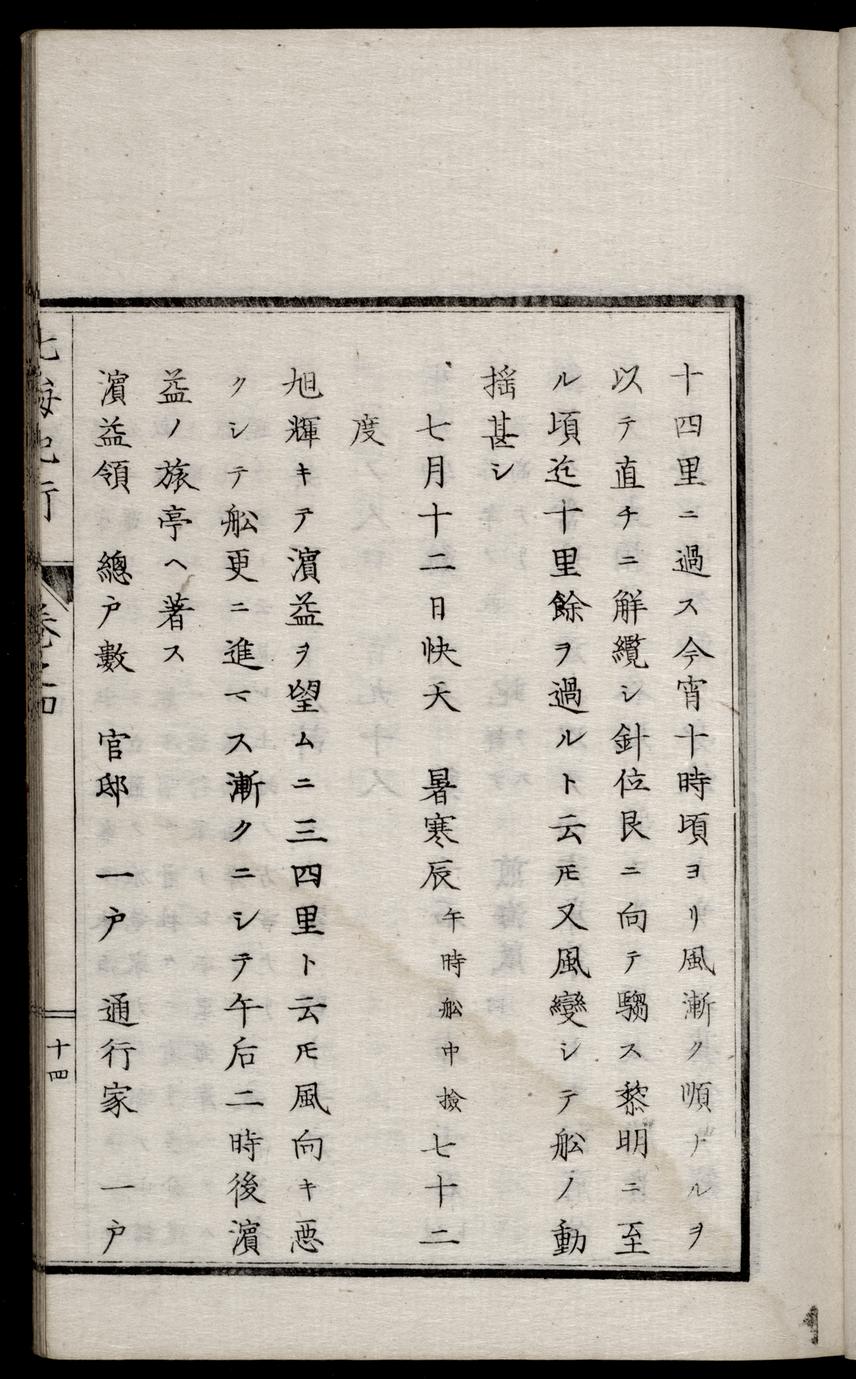 十四里ニ過ス今宵十時頃ヨリ風漸ク順ナルヲ
以テ直チニ解纜シ針位艮ニ向テ騶ス黎明ニ至
ル頃迄十里餘ヲ過ルト云𪜈又風變シテ舩ノ動
揺甚シ
七月十二日快天 暑寒辰午時舩中撿七十二
度
旭輝キテ濵益ヲ望ムニ三四里ト云𪜈風向キ惡
クシテ舩更ニ進マス漸クニシテ午后二時後濵
益ノ旅亭ヘ著ス
濵益領 總戸數 官邸 一戸 通行家 一戸
北海紀行 卷之四
十四